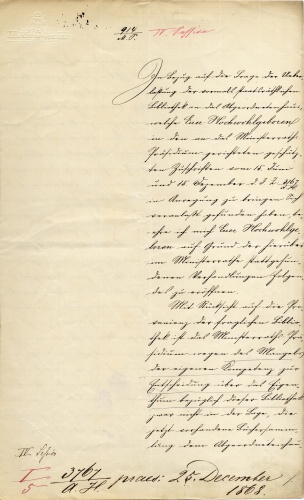 914
M.P.
IV. Session
In Bezug auf die Frage der Ueber-
lassung der vormals staatsräthlichen
Bibliothek an das Abgeordnetenhaus,
welche Eure Hochwohlgeboren
in den an das Ministerraths
Präsidium gerichteten geschätz-
ten Zuschriften vom 15. Juni
und 15. Dezember d. J. Z.
in Anregung zu bringen Sich
veranlaßt gefunden haben, be-
ehre ich mich Eure Hochwohlge-
boren auf Grund der hierüber
im Ministerrathe stattgefun-
denen Verhandlungen Folgen-
des zu eröffnen.
Mit Rücksicht auf die Pro-
venienz der fraglichen Biblio-
thek ist das Ministerraths
Präsidium wegen des Mangels
der eigenen Kompetenz zur
Entscheidung über das Eigen-
thum bezüglich dieser Bibliothek
zwar nicht in der Lage, die
jetzt vorhandene Büchersamm-
lung dem Abgeordnetenhau-
IV. Session
I/5 3767/A.H. praes: 25. December
1868.